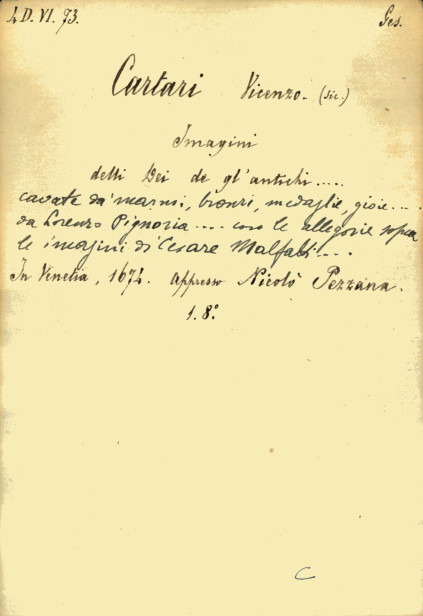 4 D. VI. 73. Ges.
Cartari Vicenzo. (sic.)
Imagini
delli Dei de gl'antichi.....
cavate da' marmi, bronzi, medaglie, gioie....
da Lorenzo Pignoria.... con le allegorie sopra
le imagini di Cesare Malfatti....
In Venetia, 1674. appresso Nicolò Pezzana.
1. 8º
C